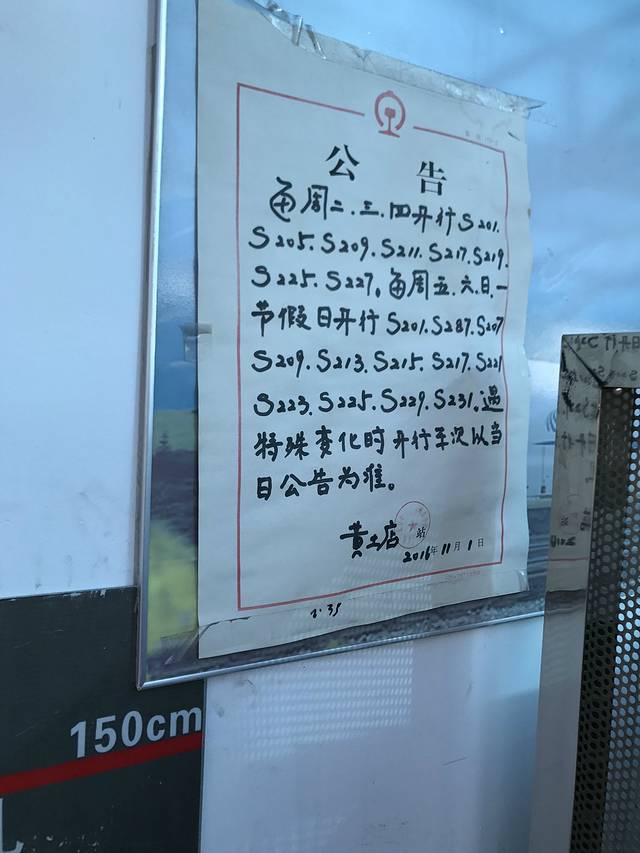 公 告
每周二.三.四开行S201.
S205.S209.S211.S217.S219.
S225.S227。每周五.六.日.一
节假日开行S201.S287.S207
S209.S213.S215.S217.S221
S223.S225.S229.S231.遇
特殊变化时开行车次以当
日公告为准。
黄土店 站
2016年11月1日
150cm